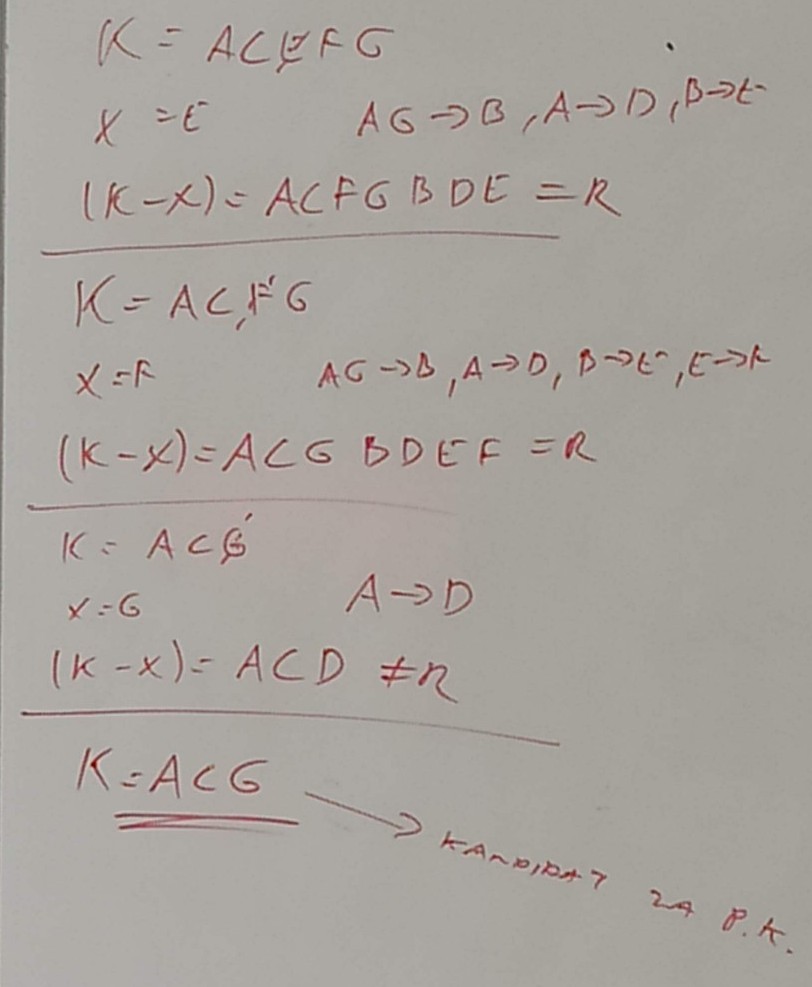 K = ACEFG
X = E AG → B, A → D, B → E
(K-X) = ACFGBDE = R
K = ACFG
X = F AG → B, A → D, B → E, E → F
(K-X) = ACG BDEF = R
K = ACG
X = G A → D
(K-X) = ACD ≠ R
K = ACG
KANDIDAT ZA P.K.